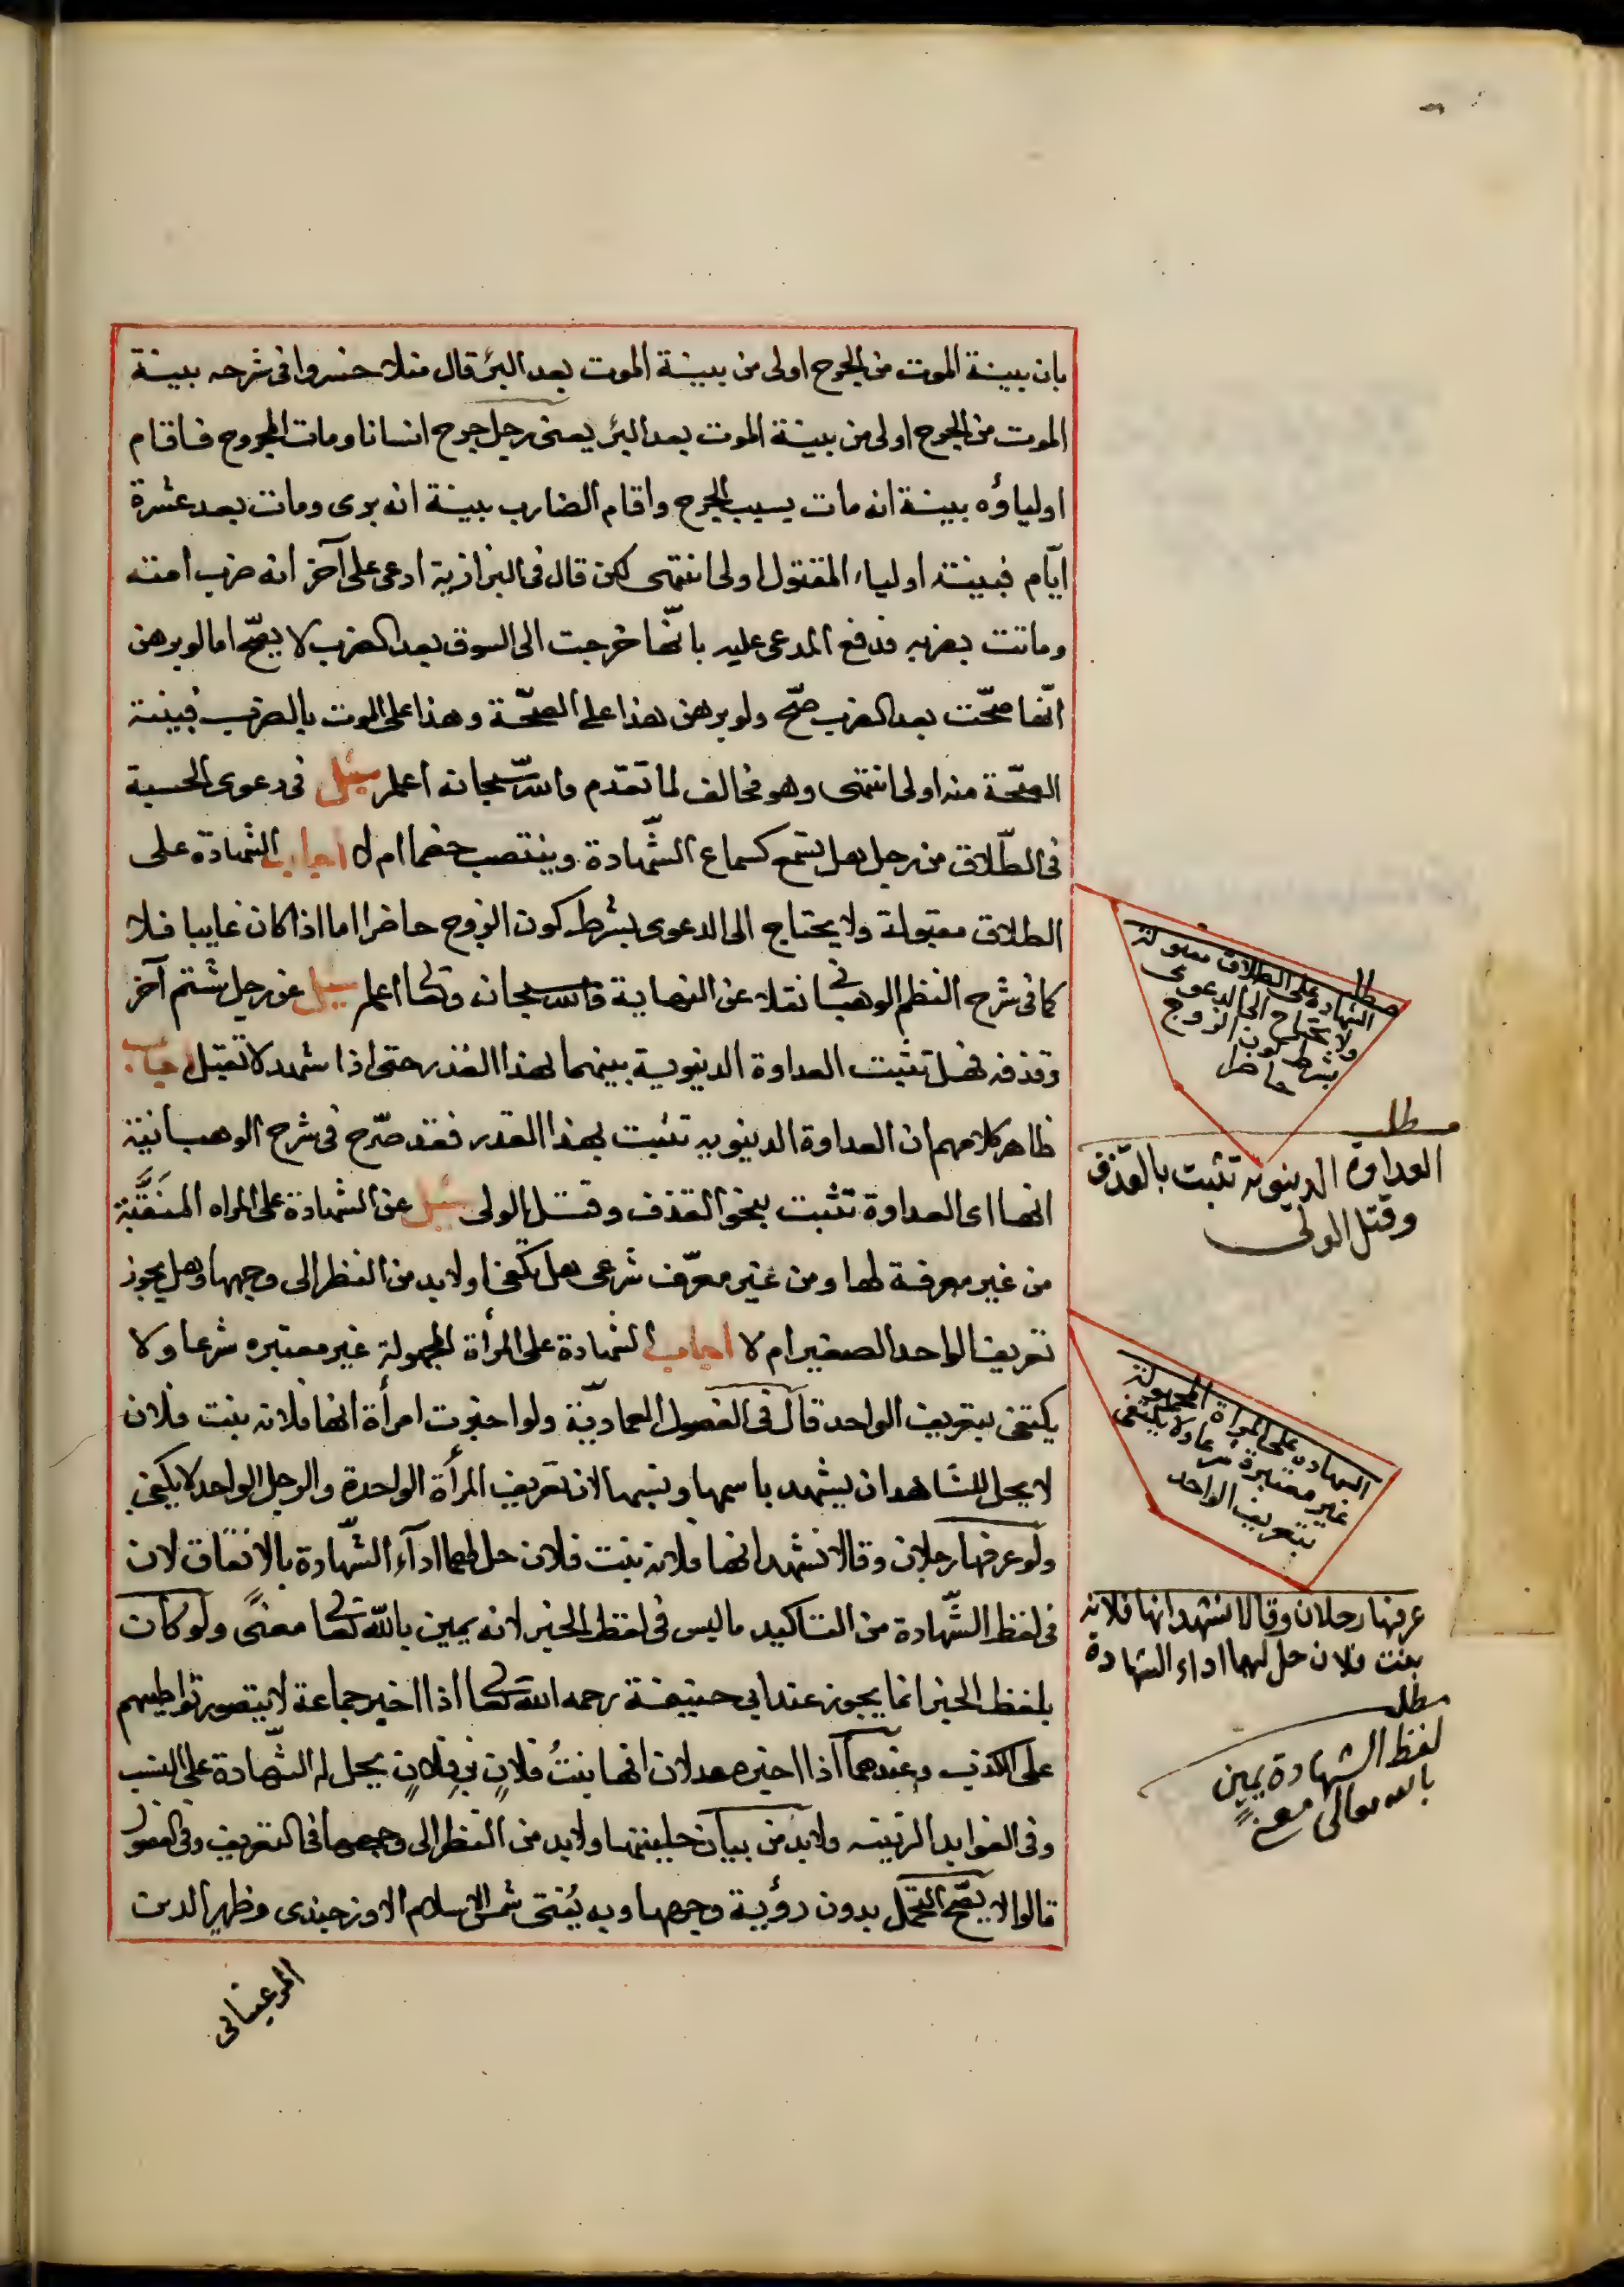 بان بينة الموت من الجرح اولى من بينة الموت بعد البرء قال منلا خسروا فى شرحه بينة
الموت من الجرح اولى من بينة الموت بعد البرء يعنى رجل جرح انسانا ومات المجروح فاقام
اولياؤه بينة انه مات بسبب الجرح واقام الضارب بينة انه برى ومات بعد عشرة
ايّام فبينة اولياء المقتول اولى انتهى لكن قال فى البزازية ادعى على آخر انه ضرب امته
وماتت بضربه فدفع المدعى عليه بانّها خرجت الى السوق بعد الضرب لا يصحّ اما لو برهن
انّها صحّت بعد الضرب صحّ ولو برهن هذا على الصحّة وهذا على الموت بالضرب فبينة
الصحّة منه اولى انتهى وهو مخالف لما تقدم والله سبحانه اعلم سئل فى دعوى الحسبة
فى الطّلاق من رجل هل تسمع كسماع الشّهادة وينتصب خصما ام لا اجاب الشهادة على
الطلاق مقبولة ولا يحتاج الى الدعوى بشرط كون الزوج حاضرا اما اذا كان غايبا فلا
كما فى شرح النظم الوهبانى نقلا عن النهاية والله سبحانه وتعالى اعلم سئل عن رجل شتم آخر
وقذفه فهل تثبت العداوة الدينوية بينهما بهذا القذر حتى اذا شهد لا تقبل اجاب
ظاهر كلامهم ان العداوة الدينويه تثبت بهذا القدر فقد صرّح فى شرح الوهبانية
انها اى العداوة تثبت بنحو القذف وقتل الولى سئل عن الشهادة على المراه المنقّبة
من غير معرفة لها ومن غير معرّف شرعى هل تكفى اولا بد من النظر الى وجهها وهل يجوز
تعريف الواحد الصغير ام لا اجاب الشهادة على المرأة المجهولة غير معتبره شرعا ولا
يكتفى بتعريف الواحد قال فى الفصول العماديّة ولو اخبرت امرأة انها فلانه بنت فلان
لا يحل للشاهد ان يشهد باسمها ونسبها لان تعريف المرأة الواحدة والرجل الواحد لا يكفى
ولو عرفها رجلان وقالا نشهد انها فلانه بنت فلان حل لهما اداء الشّهادة بالاتفاق لان
فى لفظ الشّهادة من التاكيد ما ليس فى لفظ الخبر لانه يمين بالله تعالى معنًى ولو كان
بلفظ الخبر انما يجوز عند ابى حنيفة رحمه الله تعالى اذا اخبر جماعة لا يتصور تواطيهم
على الكذب وعندهما اذا اخبره عدلان انها بنتُ فلانٍ بن فلانٍ يحل له الشّهادة على النسب
وفى الفوايد الزينيه ولا بد من بيان حليتها ولا بد من النظر الى وجهها فى التعريف وفى الفصول
قالوا لا يصّح التحمل بدون رؤية وجهها وبه يُفتى شمس الاسلام الاوزجندى وظهير الدين
المرغينانى
مطلب
الشهادة على الطلاق مقبولة
ولا يحتاج الى الدعوى
بشرط كون الزوج
حاضرا
مطلب
العداوة الدينويه تثبت بالقذف
وقتل الولى
الشهادة على المراة المجهولة
غير معتبرة شرعا ولا يكتفى
بتعريف الواحد
عرفها رجلان وقالا نشهد انها فلانه
بنت فلان حل لهما اداء الشهادة
مطلب
لفظ الشهادة يمين
بالله تعالى معنًى